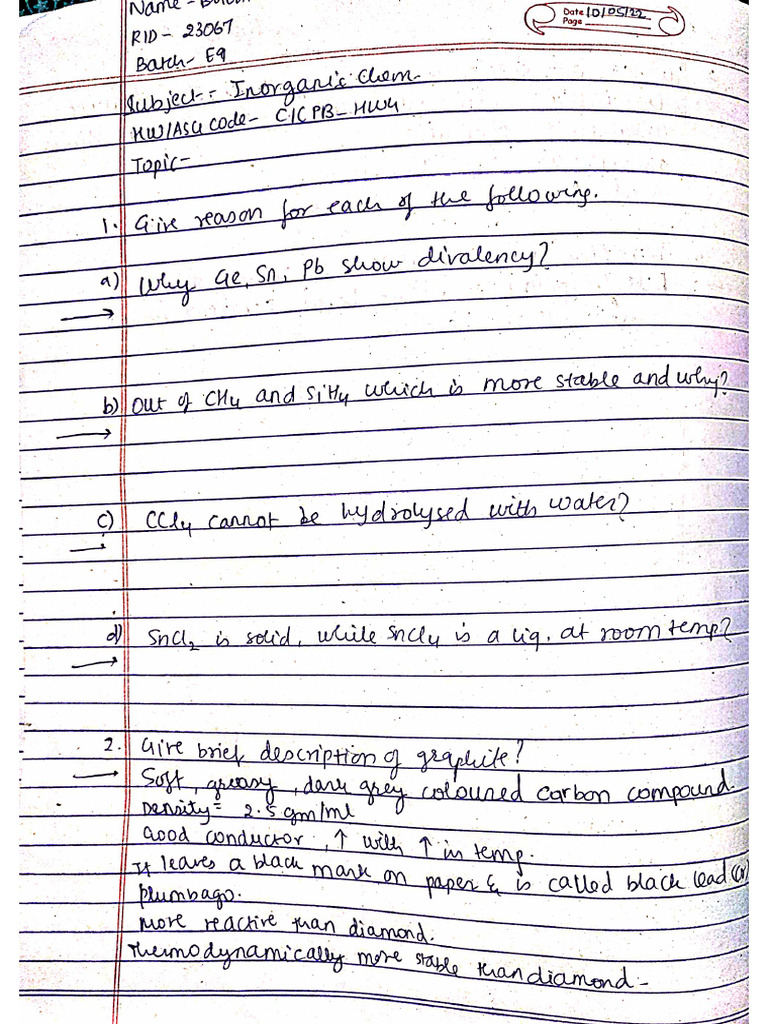 Name -
Date 10/05/22
Page
RID - 23067
Batch - E9
Subject - Inorganic Chem.
HW/ASG Code - CICPB - HW4
Topic -
1. Give reason for each of the following.
a) Why Ge, Sn, Pb show divalency?
b) Out of CH4 and SiH4 which is more stable and why?
c) CCl4 cannot be hydrolysed with water?
d) SnCl2 is solid, while SnCl4 is a liq. at room temp?
2. Give brief description of graphite?
→ Soft, greasy, dark grey coloured carbon compound.
Density = 2.5 gm/ml
Good conductor, ↑ with ↑ in temp.
It leaves a black mark on paper & is called black lead (or)
plumbago.
More reactive than diamond.
Thermodynamically more stable than diamond -